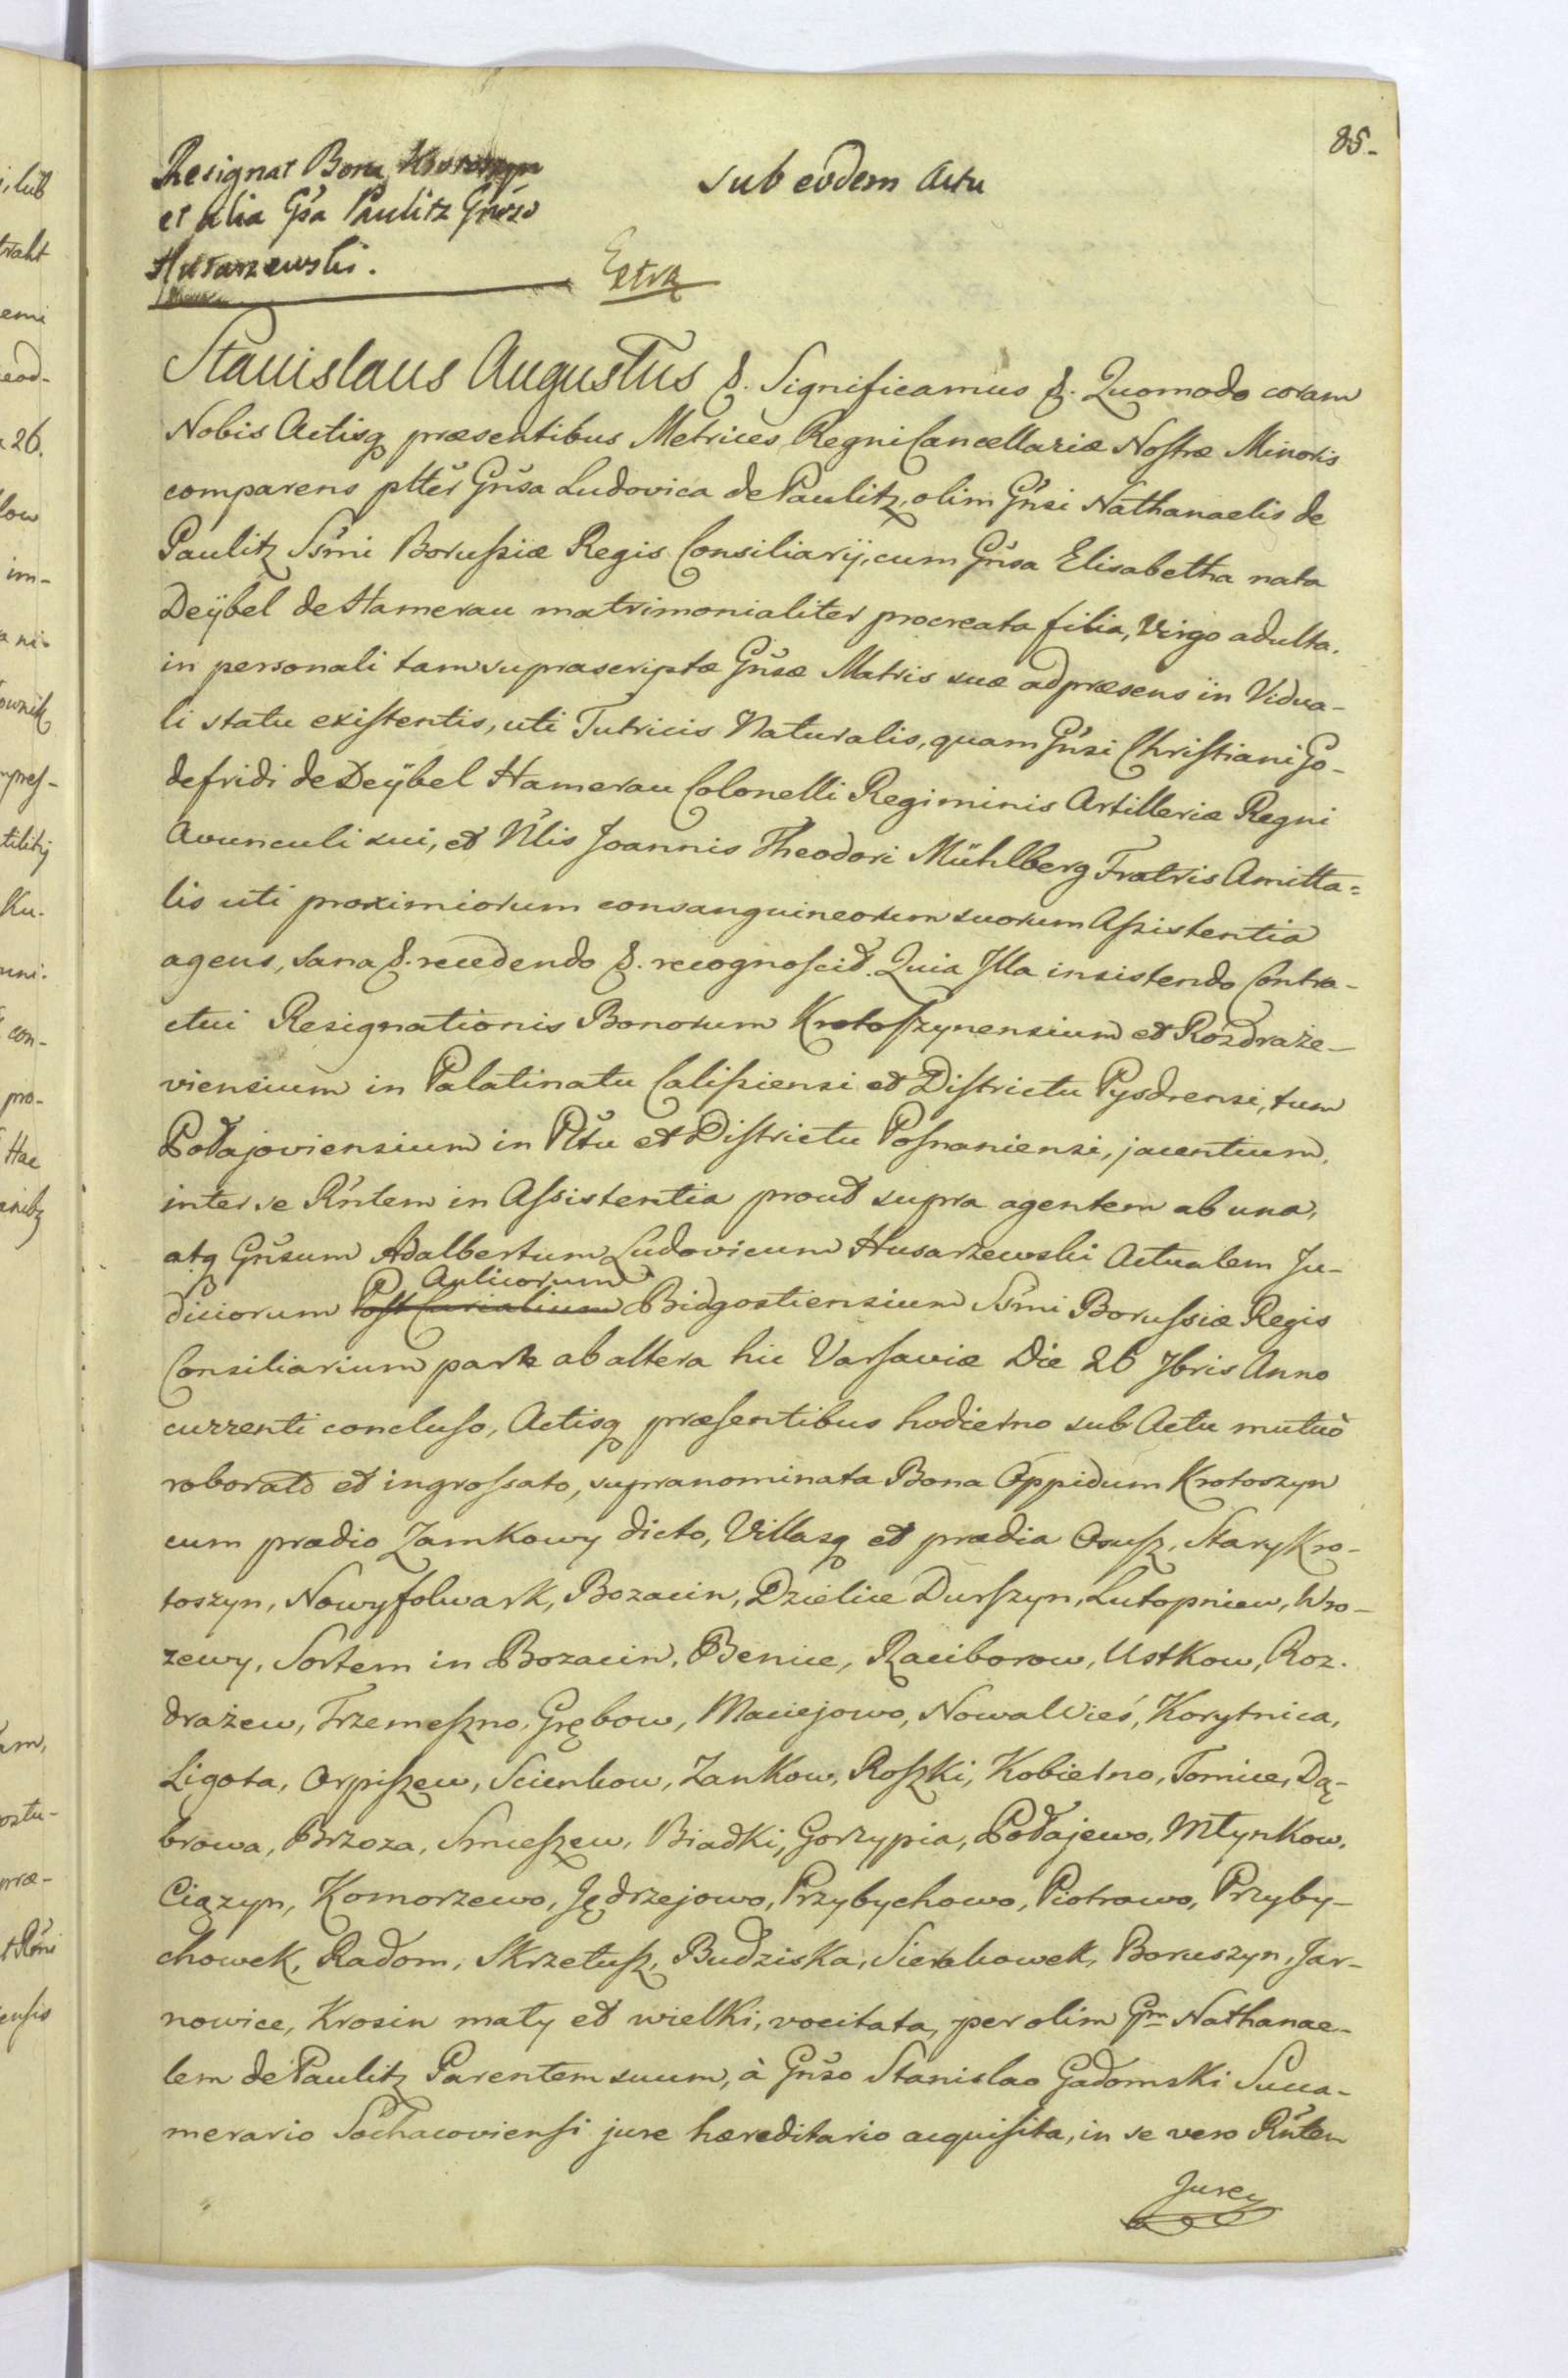 85.
Resignat Bona Krotoszyn
et alia Gsa Paulitz Gnoso
Husarzewski.
sub eodem Actu
Extra
Stanislaus Augustus &. Significamus &. Quomodo coram
Nobis Actisq præsentibus Metrices Regni Cancellariæ Nostræ Minoris
comparens plter Gnsa Ludovica de Paulitz, olim Gnsi Nathanaelis de
Paulitz Ssmi Borussiæ Regis Consiliarij, cum Gnsa Elisabetha nata
Deÿbel de Hamerau matrimonialiter procreata filia, Virgo adulta.
in personali tam suprascriptæ Gnsæ Matris suæ ad præsens in Vidua-
li statu existentis, uti Tutricis Naturalis, quam Gnsi Christiani Go-
defridi de Deÿbel Hamerau Colonelli Regiminis Artilleriæ Regni
Avunculi sui, et Nlis Joannis Theodori Mühlberg Fratris Amitta=
lis uti proximiorum consanguineorum suorum Assistentia
agens, sana &. recedendo &. recognoscit. Quia Illa insistendo Contra-
ctui Resignationis Bonorum Krotoszynensium et Rozdraże-
viensium in Palatinatu Calissiensi et Districtu Pysdrensi, tum
Połajoviensium in Pltu et Districtu Posnaniensi, jacentium,
inter se Rntem in Assistentia prout supra agentem ab una,
atq Gnsum Adalbertum Ludovicum Husarzewski Actualem Ju-
diciorum Post Curialium Aulicorum Bidgostiensium Ssmi Borussiæ Regis
Consiliarium parte ab altera hic Varsaviæ Die 26 7bris Anno
currenti concluso, Actisq præsentibus hodierno sub Actu mutuò
roborato et ingrossato, supranominata Bona Oppidum Krotoszyn
cum prædio Zamkowy dicto, Villasq et prædia Osusz, Stary Kro-
toszyn, Nowy folwark, Bozacin, Dzielice Durszyn, Lutopniew, Wro-
zewy, Sortem in Bozacin, Benice, Raciborow, Ustkow, Roz-
drażew, Trzemeszno, Grębow, Maciejowo, Nowa Wieś, Korytnica,
Ligota, Orpiszew, Scienkow, Zankow, Roszki, Kobierno, Tomice, Dą-
browa, Brzoza, Smieszew, Biadki, Gorzypia, Połajewo, Młynkow,
Ciązyn, Komorzewo, Jędrzejowo, Przybychowo, Piotrowo, Przyby-
chowek, Radom, Skrzetusz, Budziska, Sierakowek, Boruszyn, Jar-
nowice, Krosin mały et wielki, vocitata, per olim Gm Nathanae-
lem de Paulitz Parentem suum, à Gnso Stanislao Gadomski Succa-
merario Sochacoviensi jure hæreditario acquisita, in se vero Rntem
Jure